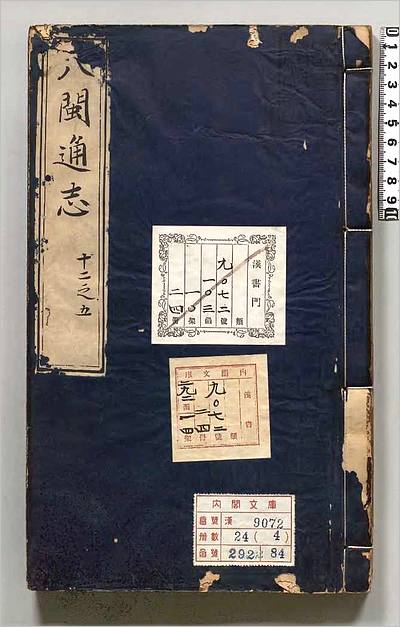 八閩通志
十二之五
漢書門
九〇七二
一〇三
一〇
二四
類
號
函
架
冊
內閣文庫
漢書
九〇七二
二四
類
號
冊
函
架
內閣文庫
番號 漢 9072
冊數 24 ( 4 )
函號 292 84
0 1 2 3 4 5 6 7 8 9 10